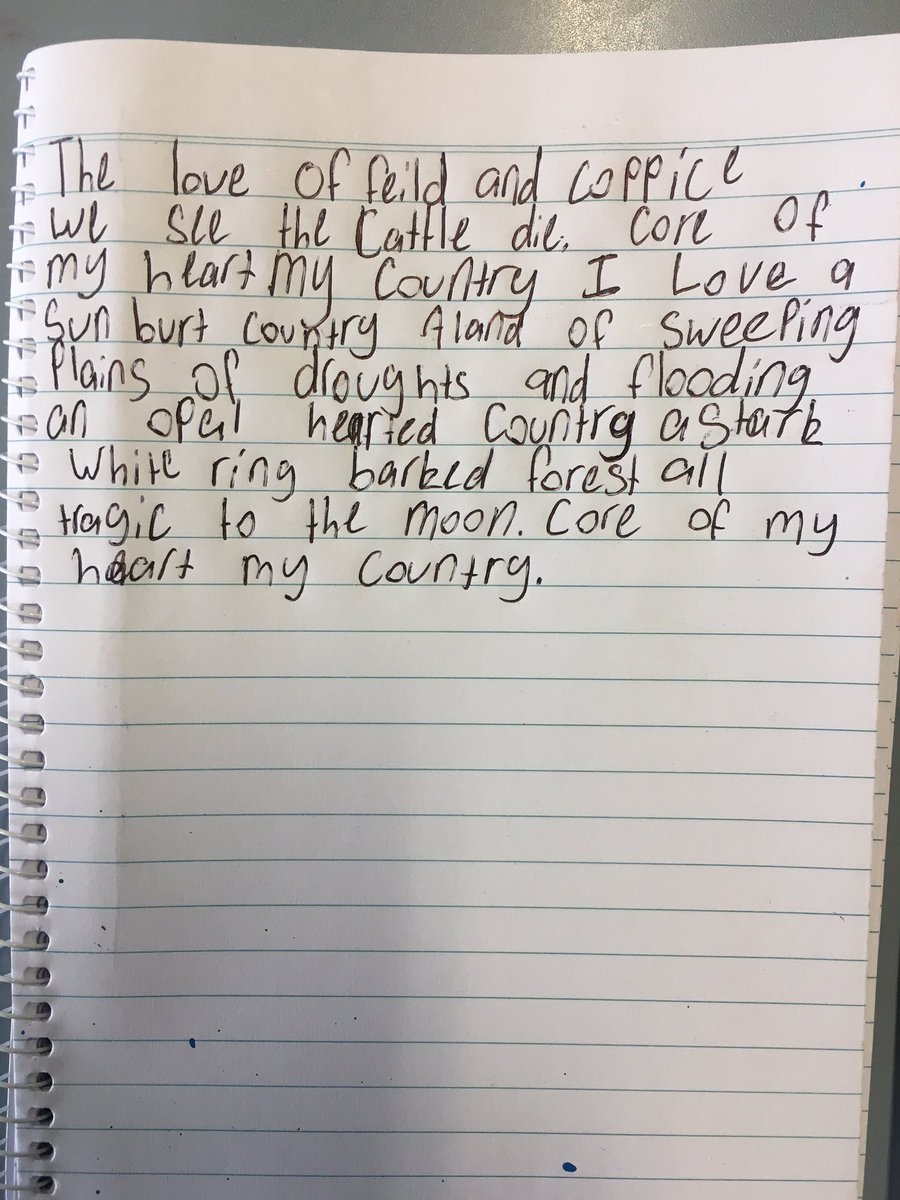 The love of feild and coppice
we see the Cattle die. Core of
my heart my Country I Love a
Sun burt country A land of sweeping
Plains of droughts and flooding
an opal hearted Country a Stark
White ring barked forest all
tragic to the moon. Core of my
heart my Country.